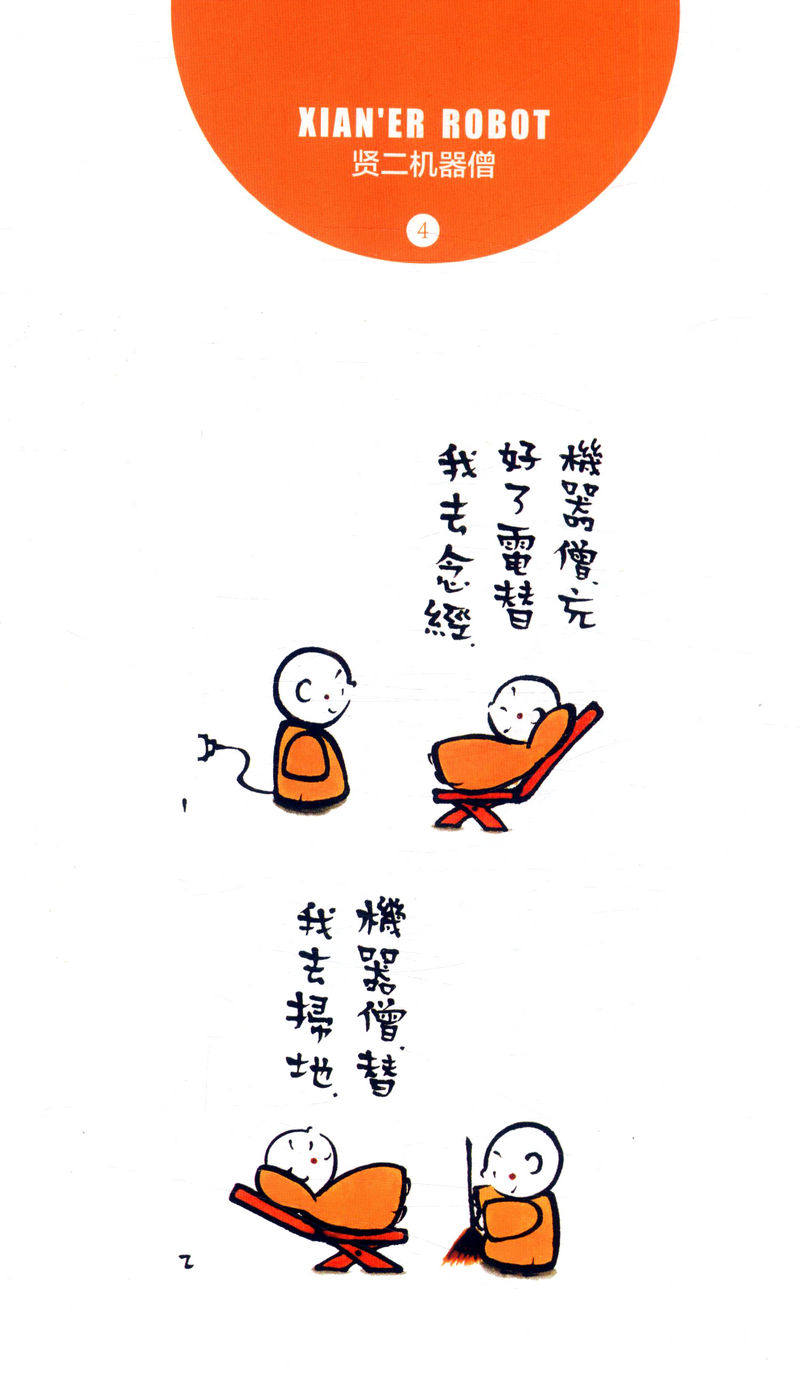 XIAN'ER ROBOT
贤二机器僧
4
機器僧、充
好了電替
我去念經.
1
機器僧.替
我去掃地.
2